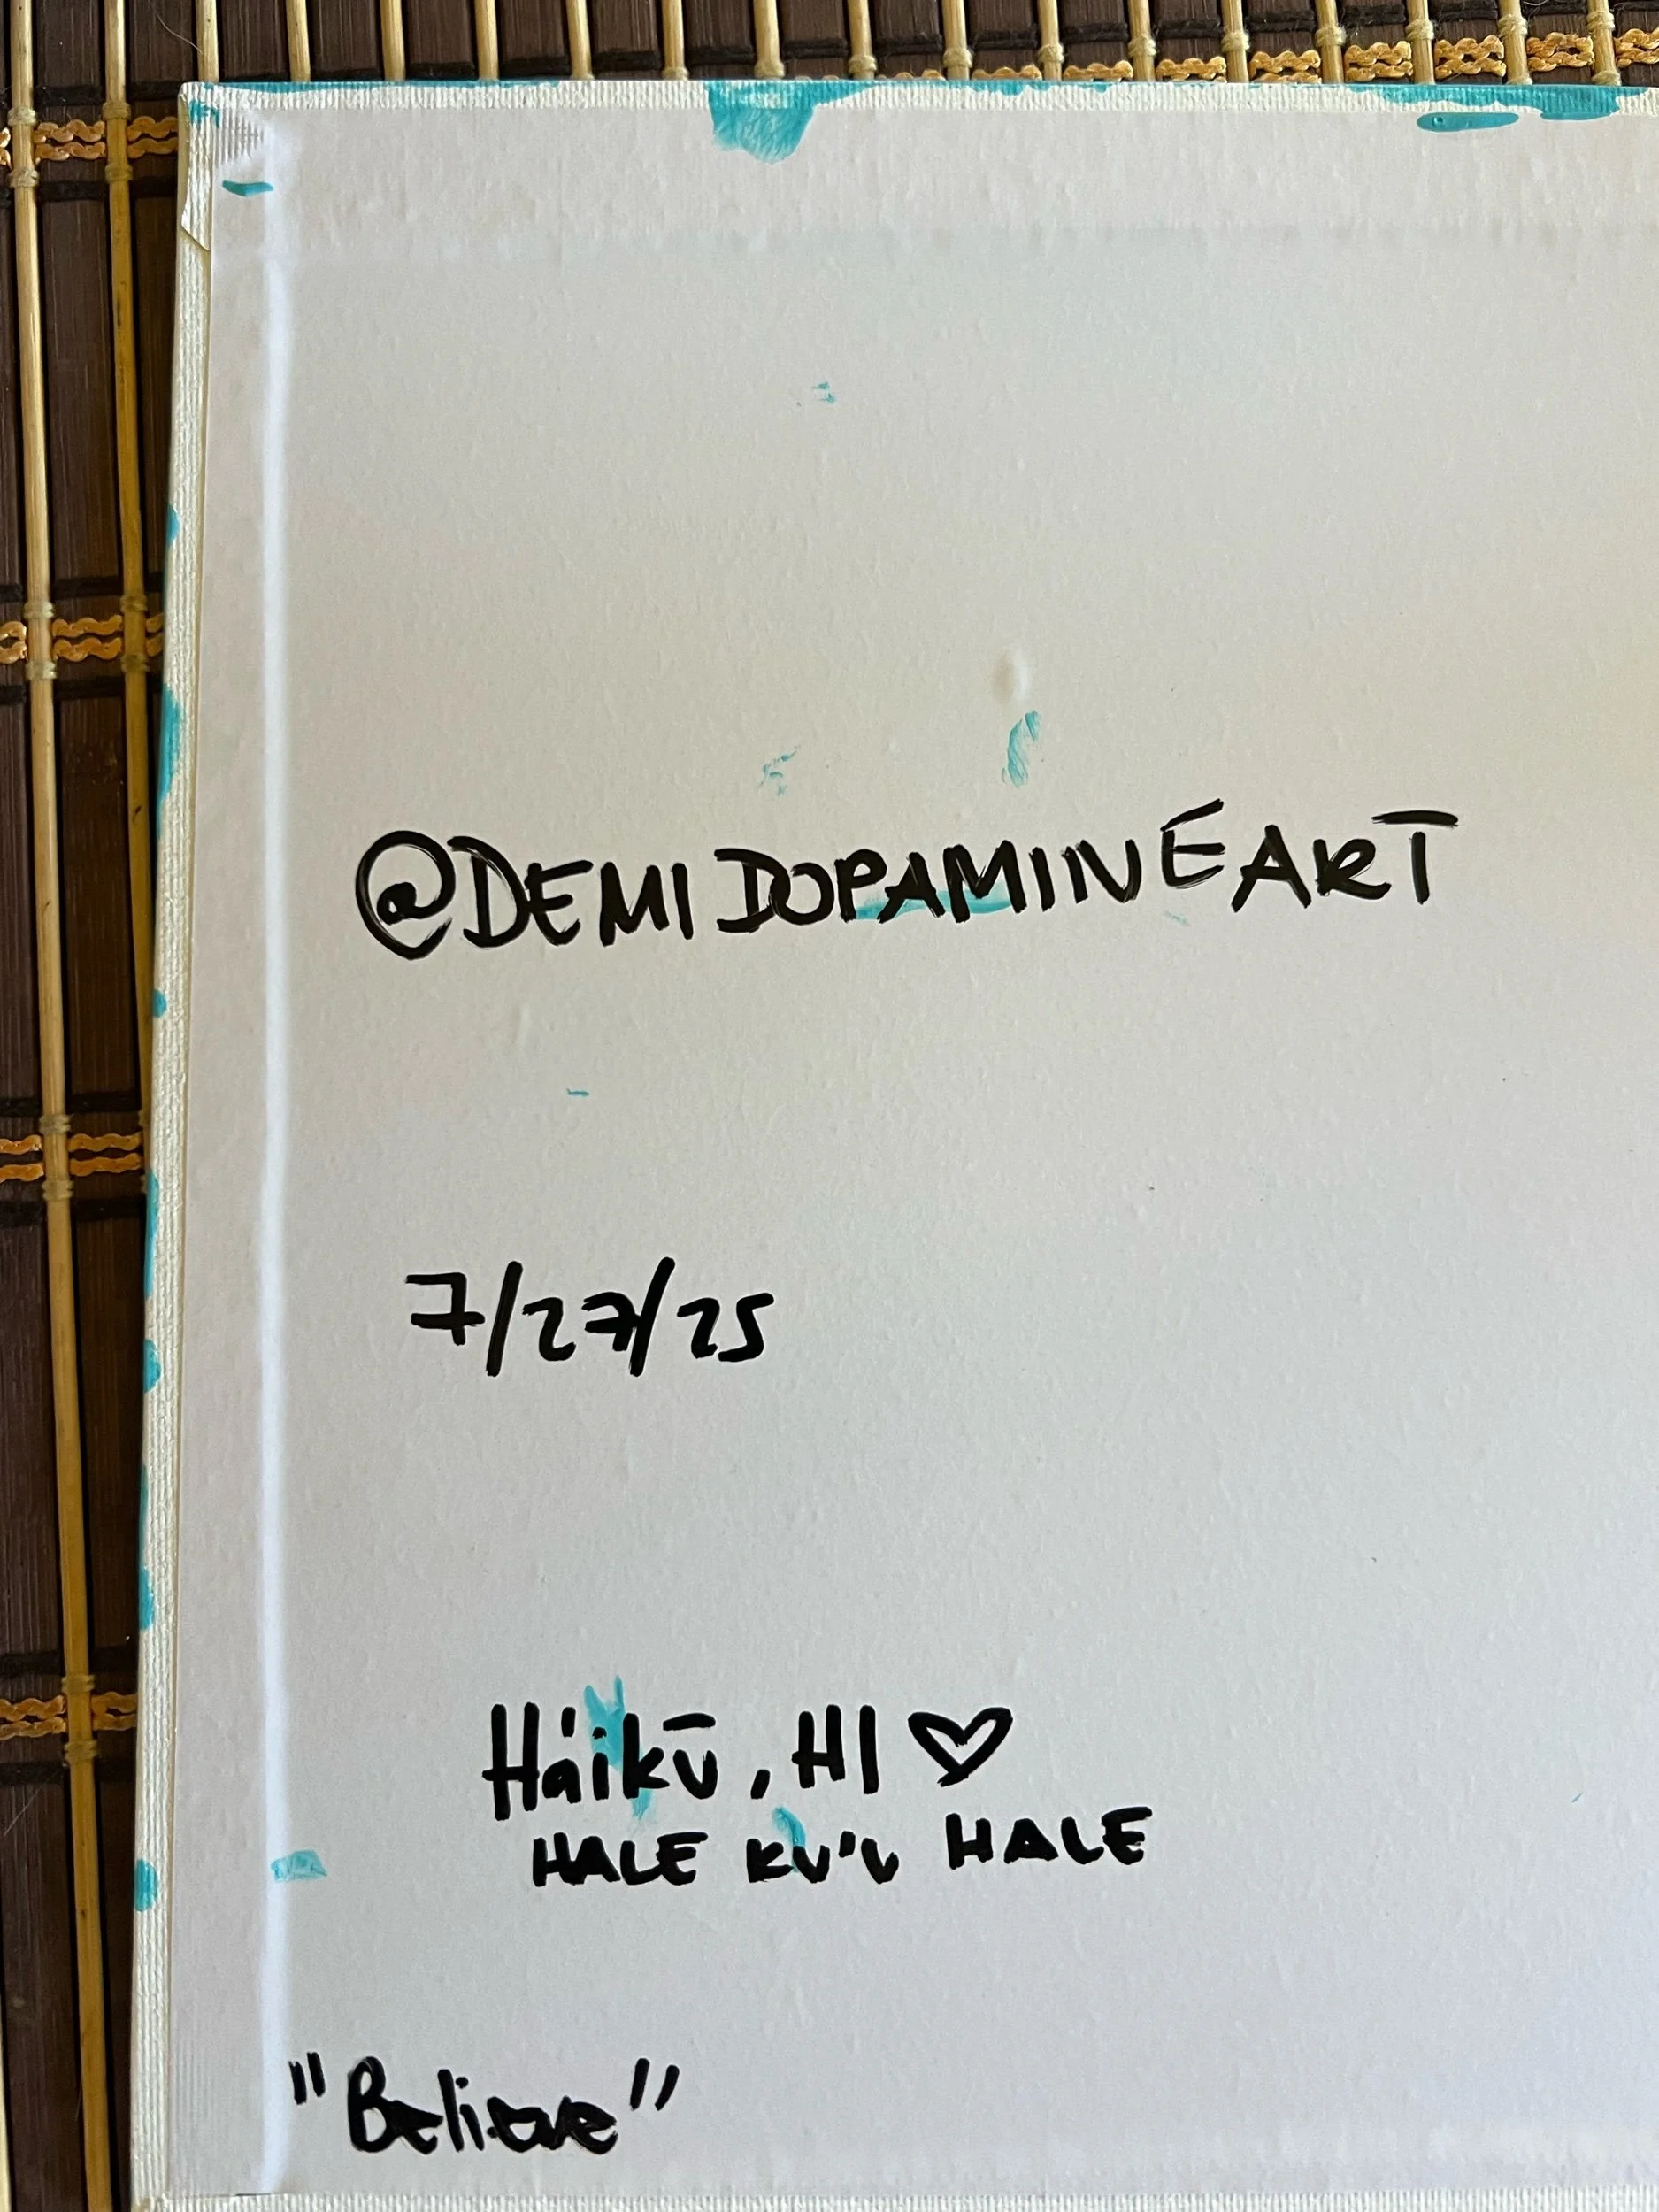 @DEMIDOPAMINEART
7/27/25
Háikū, HI ♡
HALE KU'U HALE
"Believe"